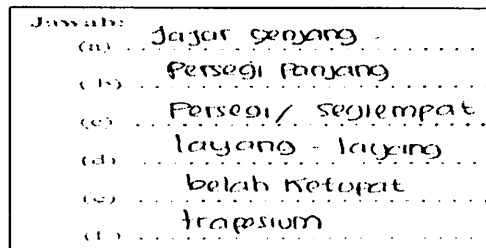 Jawab:
(a) Jajar genjang
(b) Persegi Panjang
(c) Persegi / segiempat
(d) layang - layang
(e) belah Ketupat
(f) trapesium